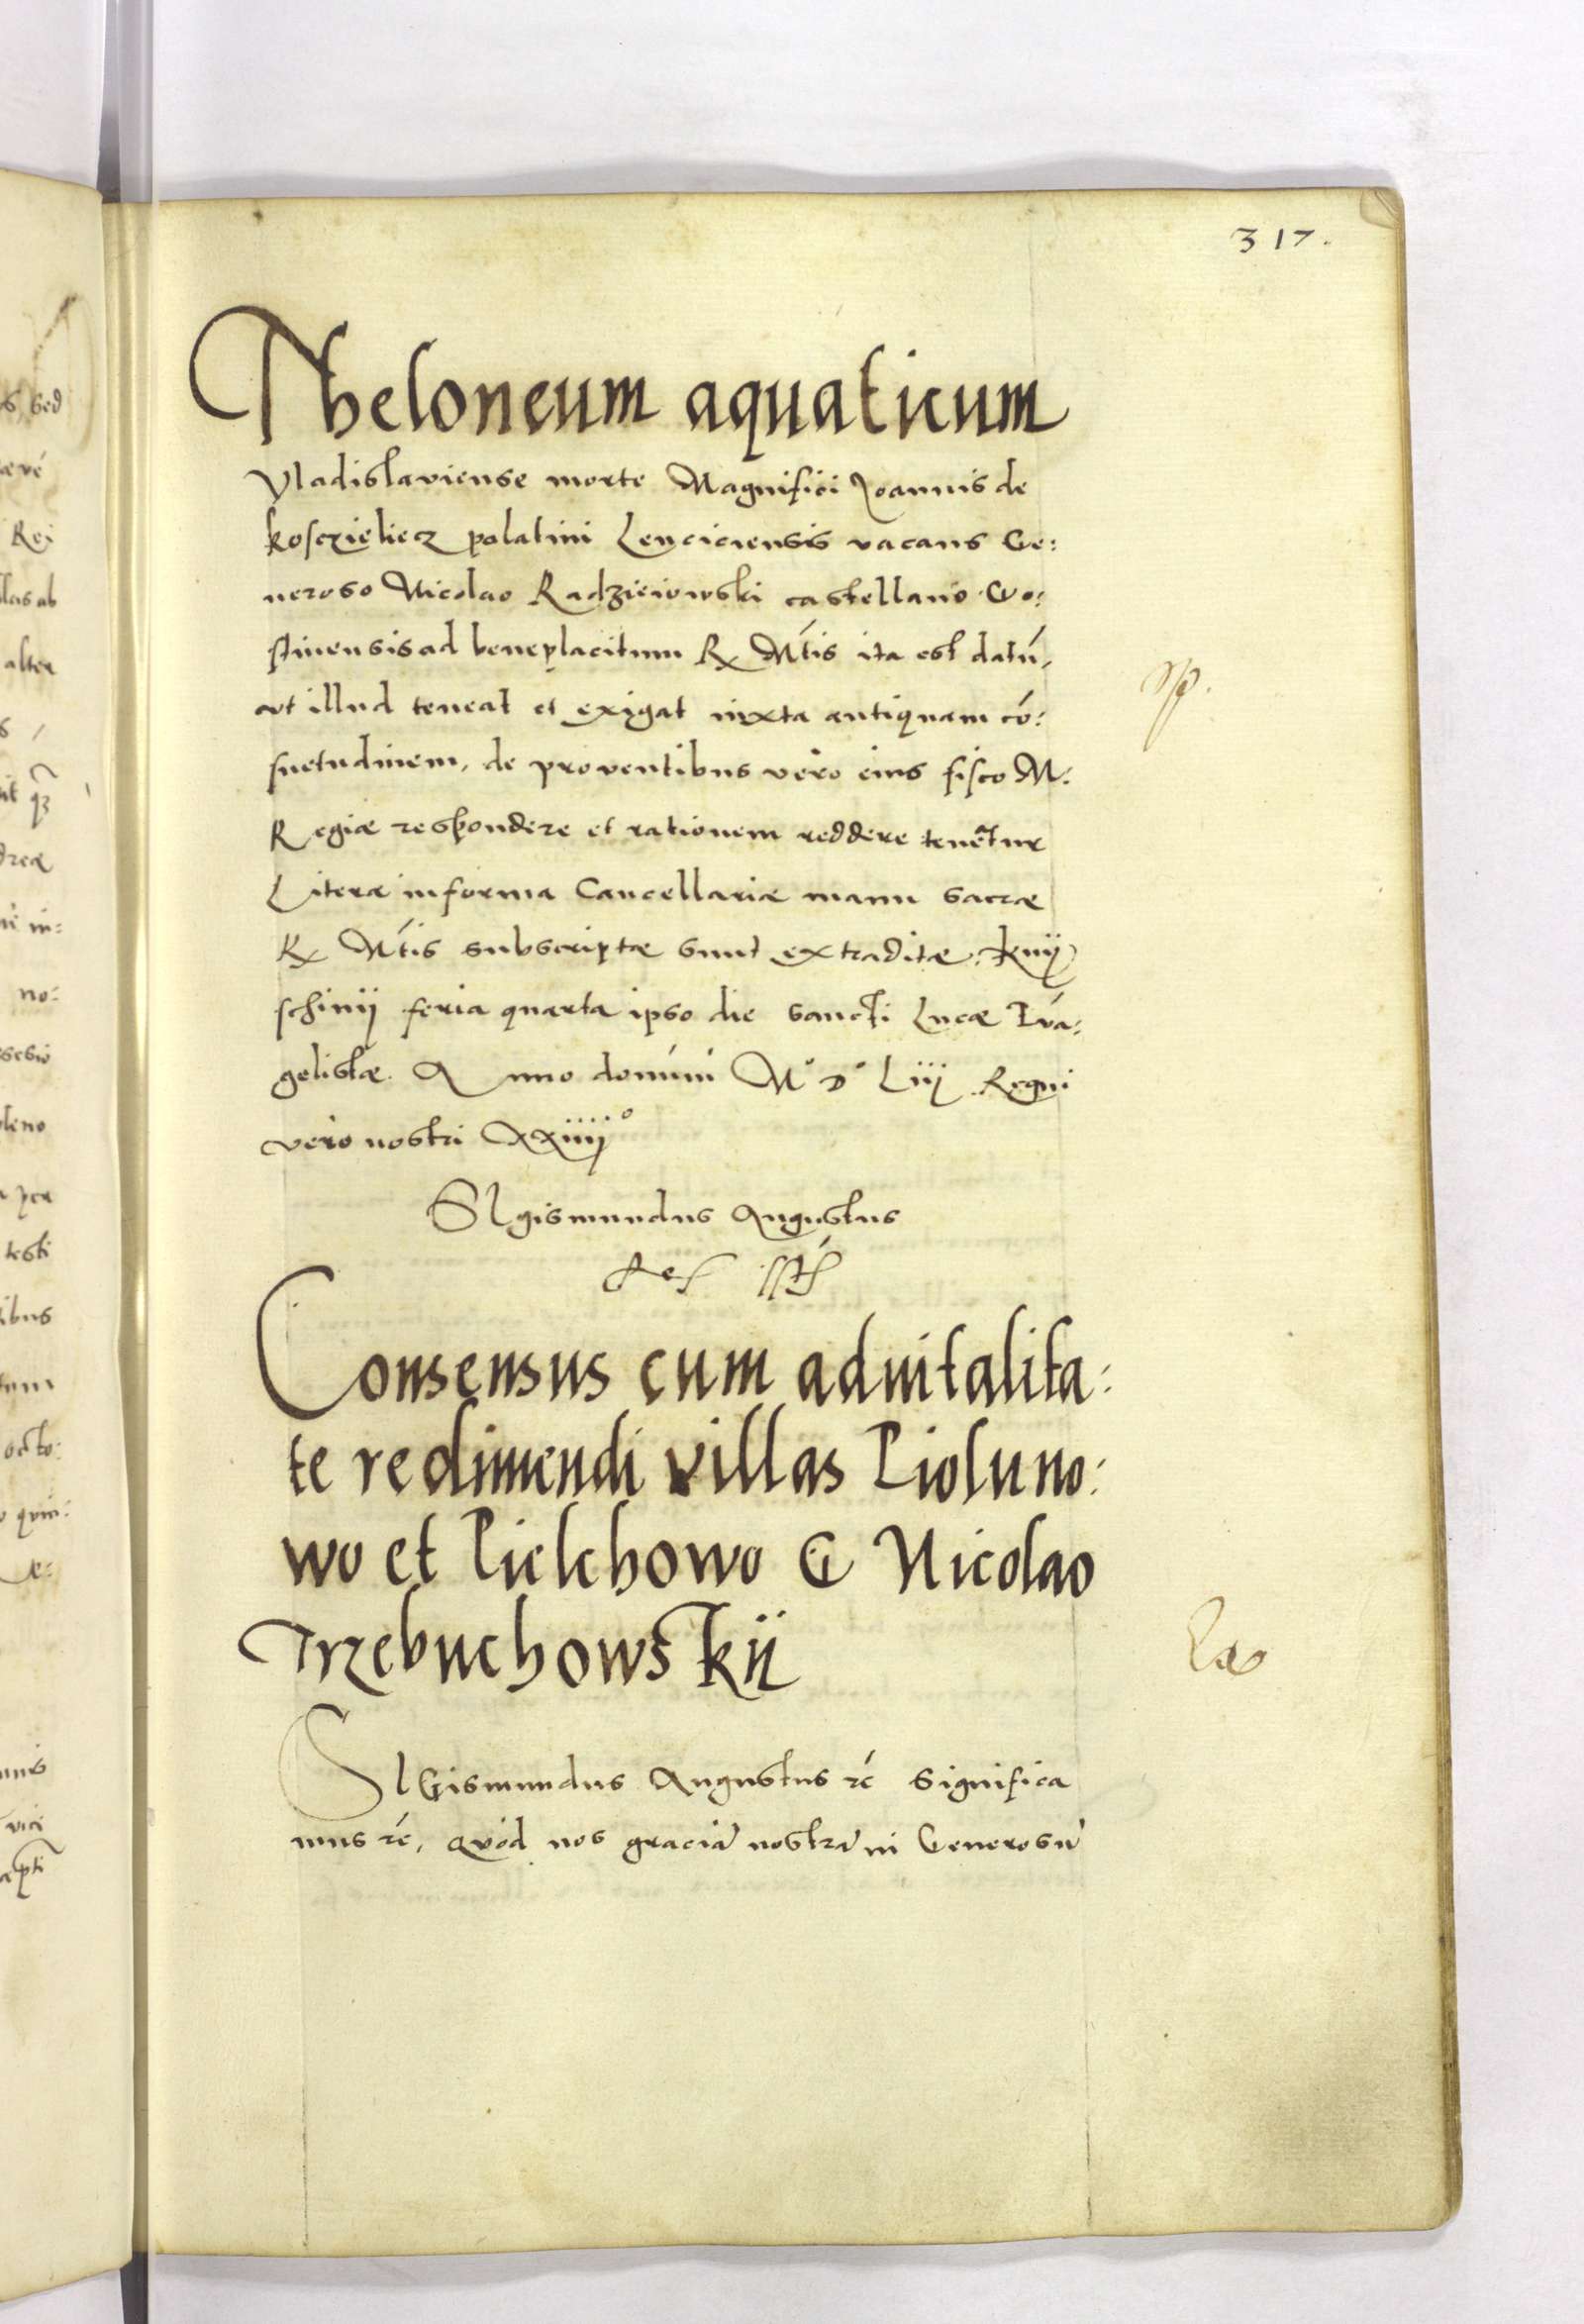 317.
Theloneum aquaticum
Vladislaviense morte Magnifici Joannis de
kosczieliecz palatini Lenciciensis vacans Ge:
neroso Nicolao Radzieiowski castellano Go:
stinensis ad beneplacitum Rx Mtis ita est datú,
ut illud teneat et exigat iuxta antiquam có:
suetudinem, de proventibus vero eius fisco M.
Regiæ respondere et rationem reddere tenetur
Literæ in forma Cancellariæ manu sacræ
Rx Mtis subscriptæ sunt extraditæ. Knÿ
schinÿ feria quarta ipso die sancti Lucæ Evá:
gelistæ. Anno domini M° D° Liij Regni
vero nostri xxiiij°
SIgismundus Augustus
Rex sst
Consensus cum advitalita:
te redimendi villas Pioluno:
wo et Pielchowo G Nicolao
Trzebuchowskij
SIGismundus Augustus rc significa
mus rc, Quod nos graciã nostrã in Generosũ